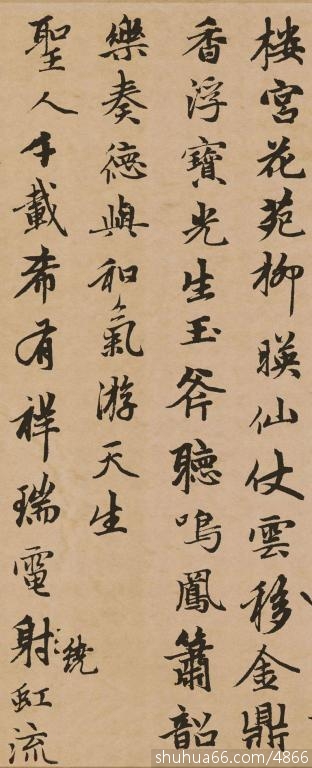 楼宫花苑柳暎仙仗雲移金鼎
香浮寶光生玉斧聽鳴鳳簫韶
樂奏德與和氣游天生
聖人千載希有祥瑞電射虹流
繞
shuhua66.com/4866